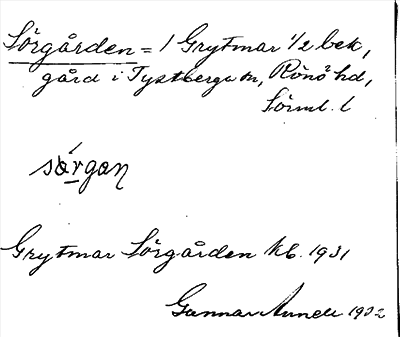 Sörgården = 1 Grytmar 1/2 bek,
gård i Tystberga sn, Rönö hd,
Sörml. l
sörgan
Grytmar Sörgården kb. 1931
Gunnar 1932